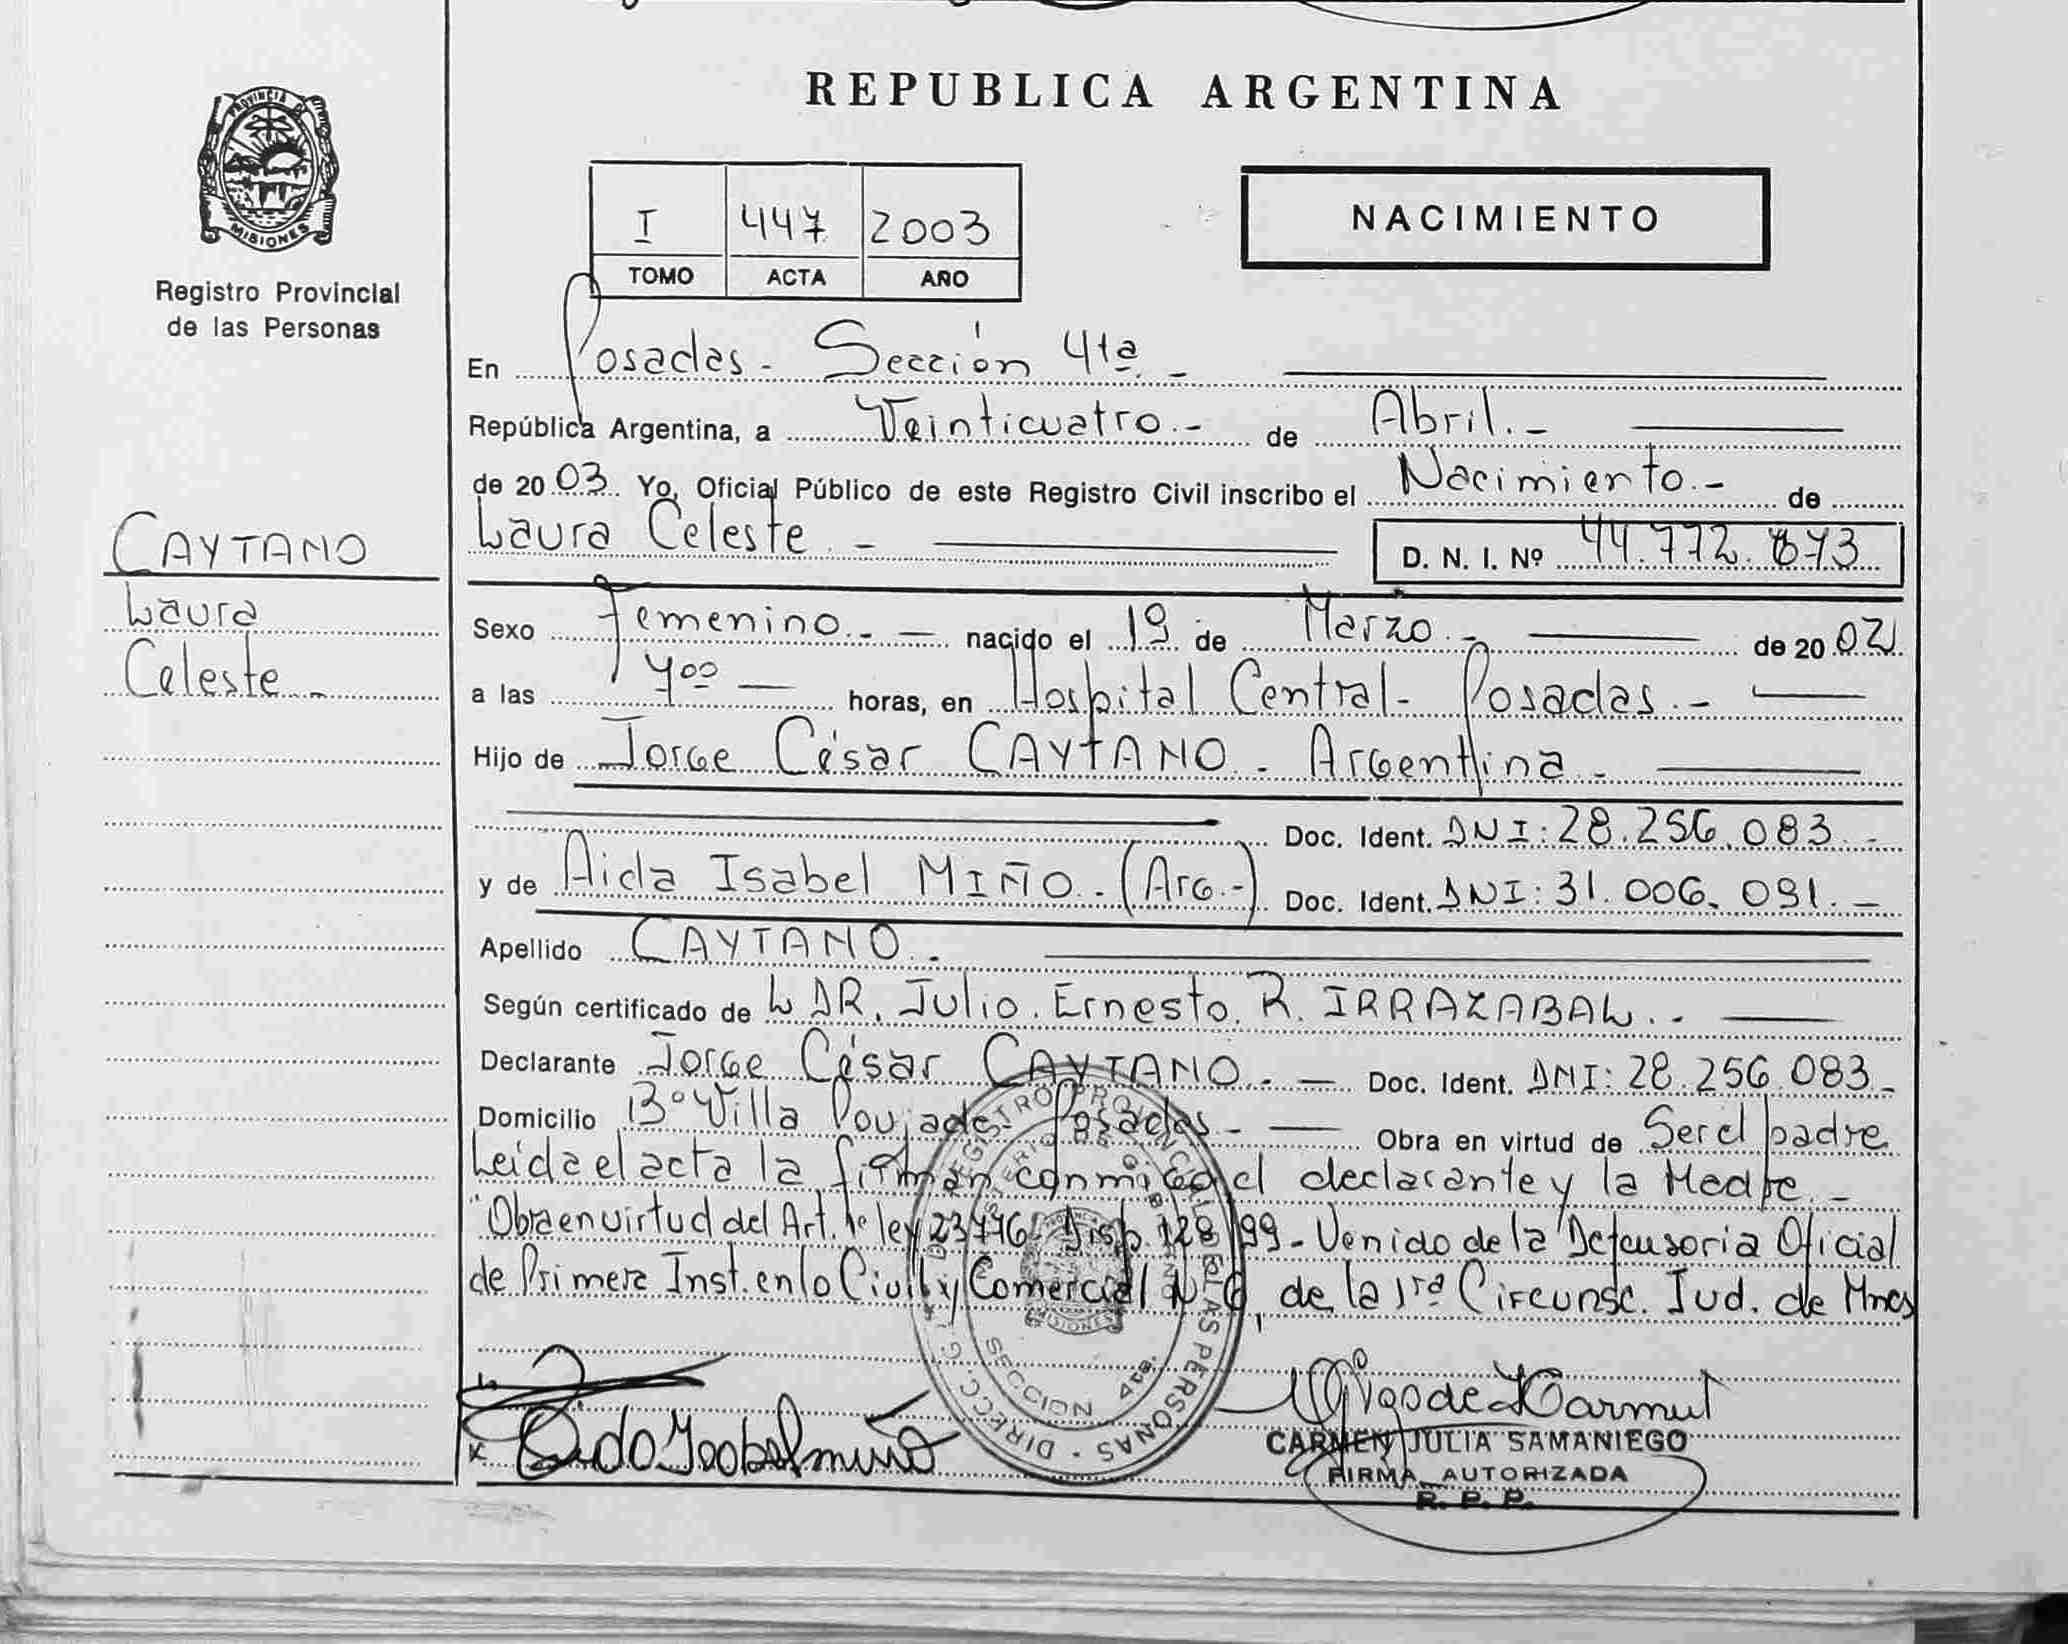 REPUBLICA ARGENTINA
PROVINCIA DE
MISIONES
Registro Provincial
de las Personas
I 447 2003
TOMO ACTA AÑO
NACIMIENTO
En Posadas - Sección 4ta. -
República Argentina, a Veinticuatro. - de Abril. -
de 2003. Yo, Oficial Público de este Registro Civil inscribo el Nacimiento. - de
Laura Celeste. - D. N. I. Nº 44.772.873
CAYTANO
Laura
Celeste. -
Sexo Femenino. - nacido el 19 de Marzo. - de 2002
a las 4⁰⁰ horas, en Hospital Central - Posadas. -
Hijo de Jorge César CAYTANO - Argentina -
Doc. Ident. DNI: 28.256.083. -
y de Aida Isabel MIÑO. - (Arg. -) Doc. Ident. DNI: 31.006.091. -
Apellido CAYTANO. -
Según certificado de L DR. Julio. Ernesto. R. IRRAZABAL. -
Declarante Jorge César CAYTANO. - Doc. Ident. DNI: 28.256.083 -
Domicilio Bº Villa Poujade - Posadas - Obra en virtud de Ser el padre
Leída el acta la firman conmigo el declarante y la Madre. -
"Obra en virtud del Art. 1º ley 23776 - Disp. 128/99 - Venido de la Defensoría Oficial
de Primera Inst. en lo Civil y Comercial Nº 6, de la 1ra Circunsc. Jud. de Mnes
DIRECC. GRAL. REGISTRO PROVINCIAL DE LAS PERSONAS
SECCION 4ta.
MISIONES
Aida Isabel Miño
CARMEN JULIA SAMANIEGO
FIRMA AUTORIZADA
R. P. P.